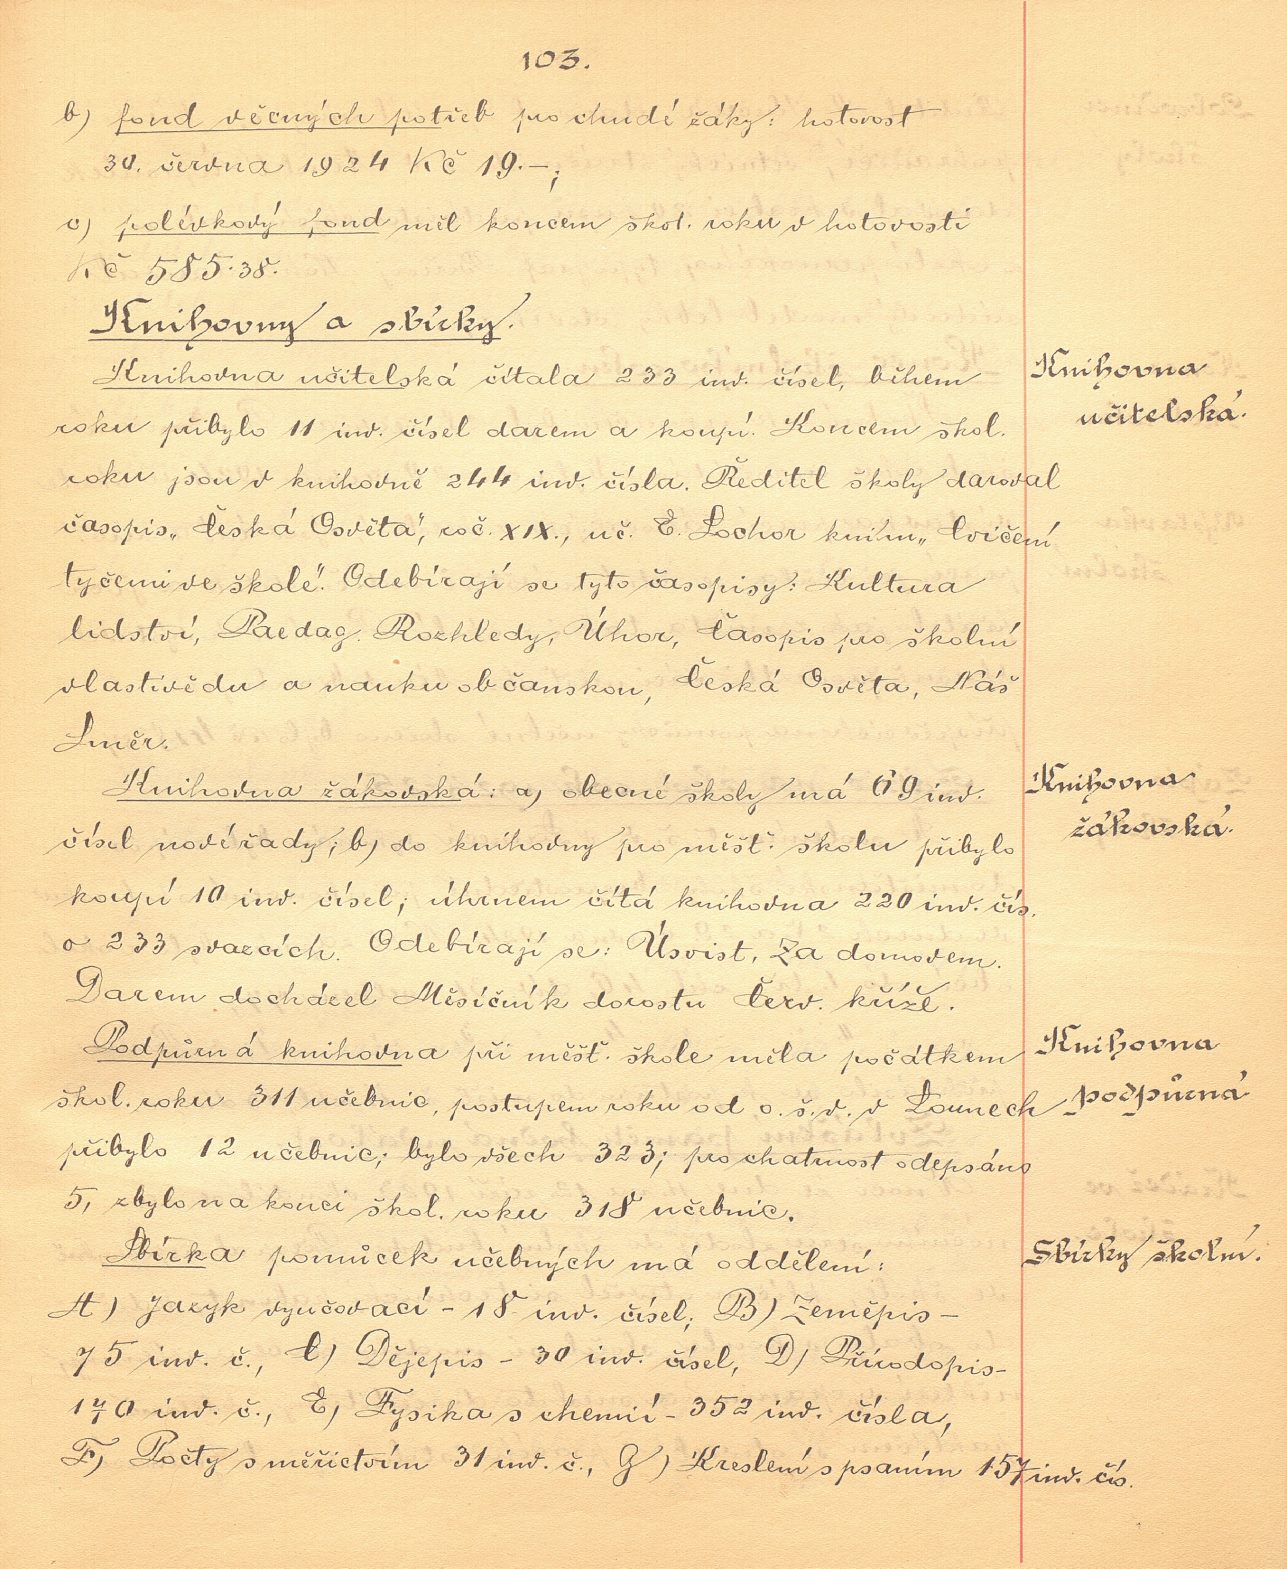 103.
b) fond věcných potřeb pro chudé žáky: hotovost
30. června 1924 Kč 19.–;
c) polévkový fond měl koncem škol. roku v hotovosti
Kč 585.38.
Knihovny a sbírky.
Knihovna učitelská čítala 233 inv. čísel, během
roku přibylo 11 inv. čísel darem a koupí. Koncem škol.
roku jsou v knihovně 244 inv. čísla. Ředitel školy daroval
časopis „Česká Osvěta", roč. XIX., uč. E. Lochor knihu „Cvičení
tyčemi ve škole". Odebírají se tyto časopisy: Kultura
lidství, Paedag. Rozhledy, Úhor, Časopis pro školní
vlastivědu a nauku občanskou, Česká Osvěta, Náš
Směr.
Knihovna
učitelská.
Knihovna žákovská: a) obecné školy má 69 inv.
čísel nové řady; b) do knihovny pro měšť. školu přibylo
koupí 10 inv. čísel; úhrnem čítá knihovna 220 inv. čís.
o 233 svazcích. Odebírají se: Úsvit, Za domovem.
Darem docházel Měsíčník dorostu Červ. kříže.
Knihovna
žákovská.
Podpůrná knihovna při měšť. škole měla počátkem
škol. roku 311 učebnic, postupem roku od o. š. v. v Lounech
přibylo 12 učebnic; bylo všech 323; pro chatrnost odepsáno
5, zbylo na konci škol. roku 318 učebnic.
Knihovna
podpůrná
Sbírka pomůcek učebných má oddělení:
A) Jazyk vyučovací – 18 inv. čísel; B) Zeměpis –
75 inv. č., C) Dějepis – 30 inv. čísel, D) Přírodopis –
170 inv. č., E) Fysika s chemií – 352 inv. čísla,
F) Počty s měřictvím 31 inv. č., G) Kreslení s psaním 157 inv. čís.
Sbírky školní.